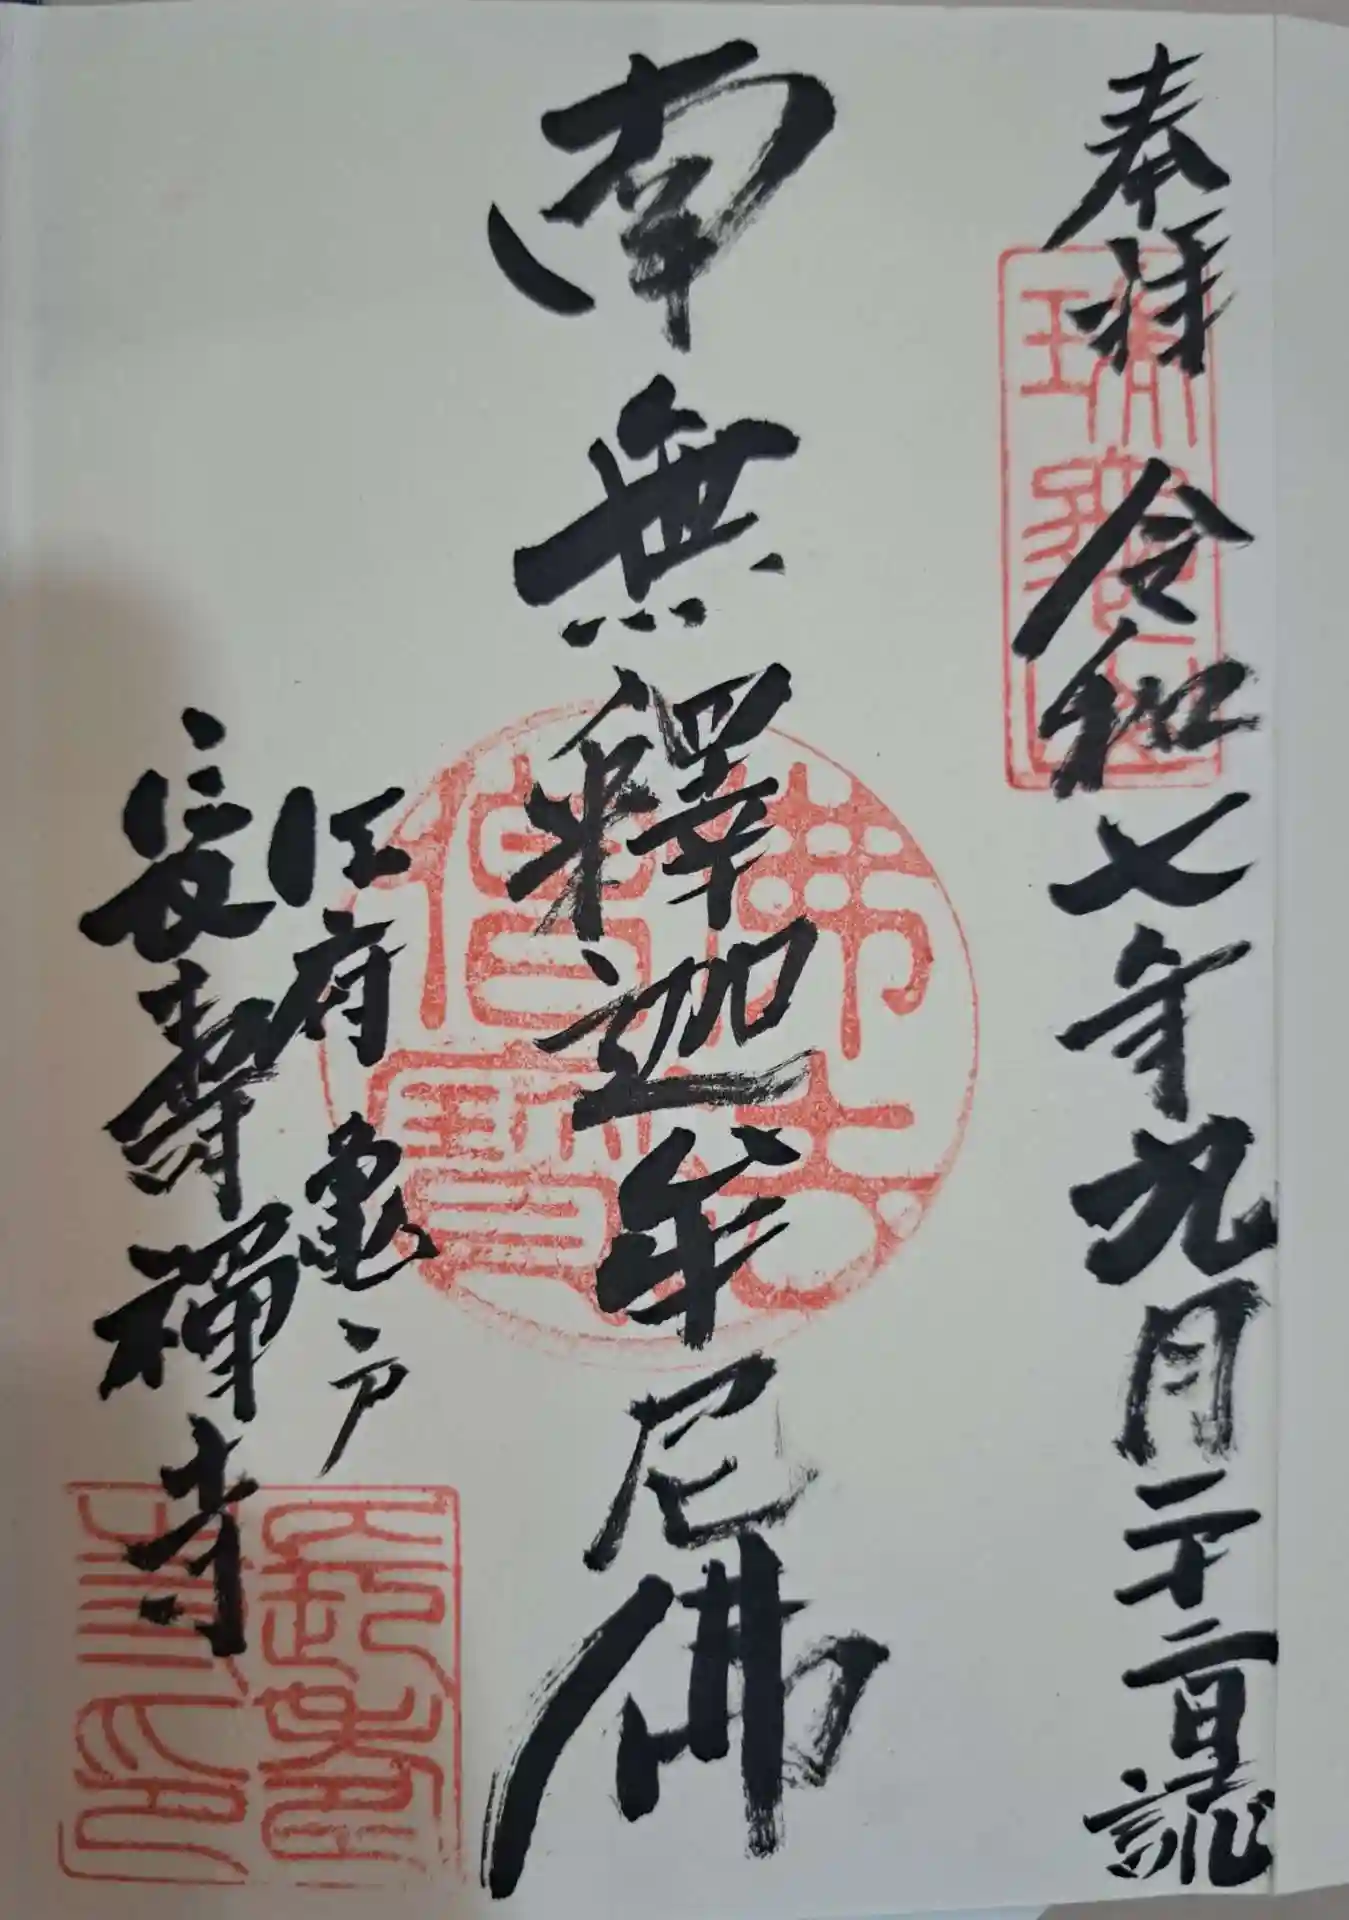 奉拝 令和七年九月二十二日誌
南無釋迦牟尼佛
江府 亀戸
長壽禪寺
佛法僧寶